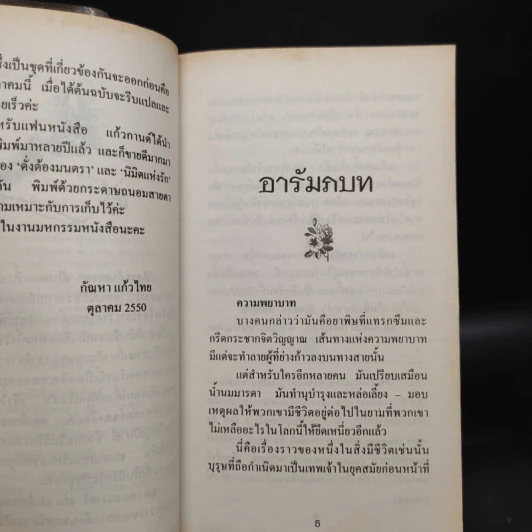 ซึ่งเป็นชุดที่เกี่ยวข้องกันจะออกก่อนคือ
าคมนี้ เมื่อได้ต้นฉบับจะรีบแปลและ
ยเร็วค่ะ
หรับแฟนหนังสือ แก้วกานต์ได้นำ
พิมพ์มาหลายปีแล้ว และก็ขายดีมากมา
อง 'ดั่งต้องมนตรา' และ 'นิมิตแห่งรัก'
กัน พิมพ์ด้วยกระดาษถนอมสายตา
ามเหมาะกับการเก็บไว้ค่ะ
ในงานมหกรรมหนังสือนะคะ
กัณหา แก้วไทย
ตุลาคม 2550
อารัมภบท
ความพยาบาท
บางคนกล่าวว่ามันคือยาพิษที่แทรกซึมและ
กรีดกระชากจิตวิญญาณ เส้นทางแห่งความพยาบาท
มีแต่จะทำลายผู้ที่ย่างก้าวลงบนทางสายนั้น
แต่สำหรับใครอีกหลายคน มันเปรียบเสมือน
น้ำนมมารดา มันทำนุบำรุงและหล่อเลี้ยง – มอบ
เหตุผลให้พวกเขามีชีวิตอยู่ต่อไปในยามที่พวกเขา
ไม่เหลืออะไรในโลกนี้ให้ยึดเหนี่ยวอีกแล้ว
นี่คือเรื่องราวของหนึ่งในสิ่งมีชีวิตเช่นนั้น
บุรุษที่ถือกำเนิดมาเป็นเทพเจ้าในยุคสมัยก่อนหน้าที่
5